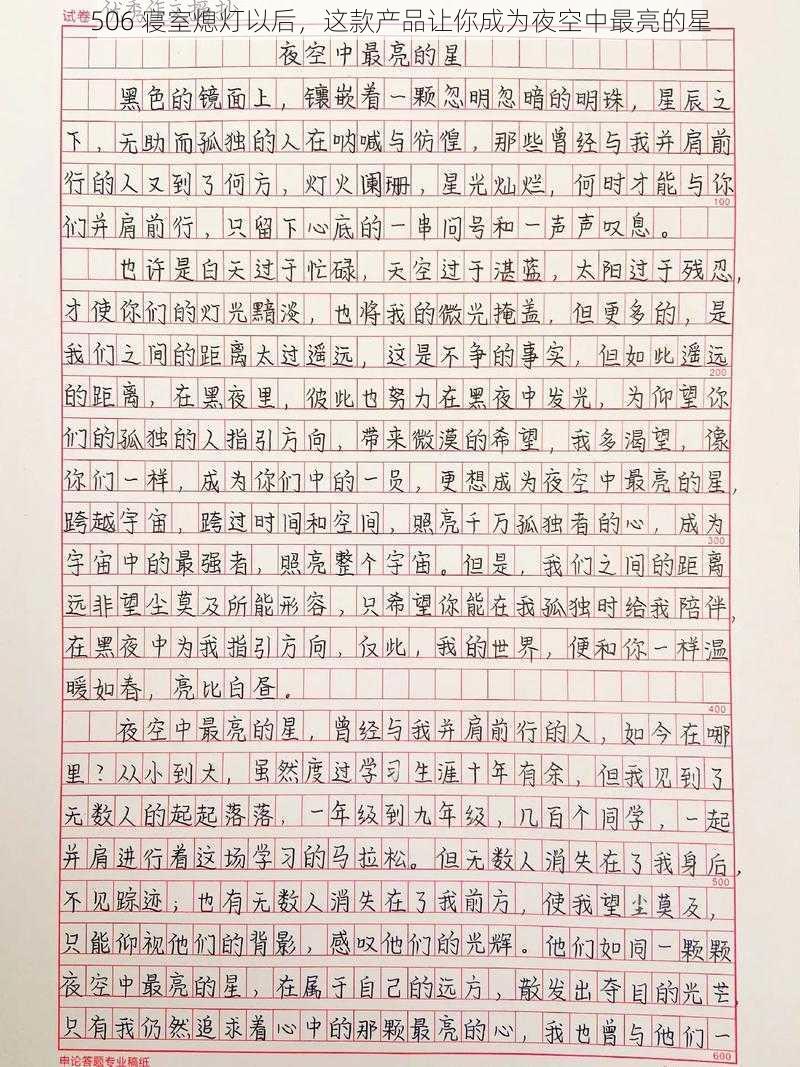 506 寝室熄灯以后，这款产品让你成为夜空中最亮的星
试卷
夜空中最亮的星
黑色的镜面上，镶嵌着一颗忽明忽暗的明珠，星辰之
下，无助而孤独的人在呐喊与彷徨，那些曾经与我并肩前
行的人又到了何方，灯火阑珊，星光灿烂，何时才能与你
100
们并肩前行，只留下心底的一串问号和一声声叹息。
也许是白天过于忙碌，天空过于湛蓝，太阳过于残忍，
才使你们的灯光黯淡，也将我的微光掩盖，但更多的，是
我们之间的距离太过遥远，这是不争的事实，但如此遥远
200
的距离，在黑夜里，彼此也努力在黑夜中发光，为仰望你
们的孤独的人指引方向，带来微漠的希望，我多渴望，像
你们一样，成为你们中的一员，更想成为夜空中最亮的星，
跨越宇宙，跨过时间和空间，照亮千万孤独者的心，成为
300
宇宙中的最强者，照亮整个宇宙。但是，我们之间的距离
远非望尘莫及所能形容，只希望你能在我孤独时给我陪伴，
在黑夜中为我指引方向，仅此，我的世界，便和你一样温
暖如春，亮比白昼。
400
夜空中最亮的星，曾经与我并肩前行的人，如今在哪
里？从小到大，虽然度过学习生涯十年有余，但我见到了
无数人的起起落落，一年级到九年级，几百个同学，一起
并肩进行着这场学习的马拉松。但无数人消失在了我身后，
500
不见踪迹；也有无数人消失在了我前方，使我望尘莫及，
只能仰视他们的背影，感叹他们的光辉。他们如同一颗颗
夜空中最亮的星，在属于自己的远方，散发出夺目的光芒，
只有我仍然追求着心中的那颗最亮的心，我也曾与他们一
600
申论答题专业稿纸